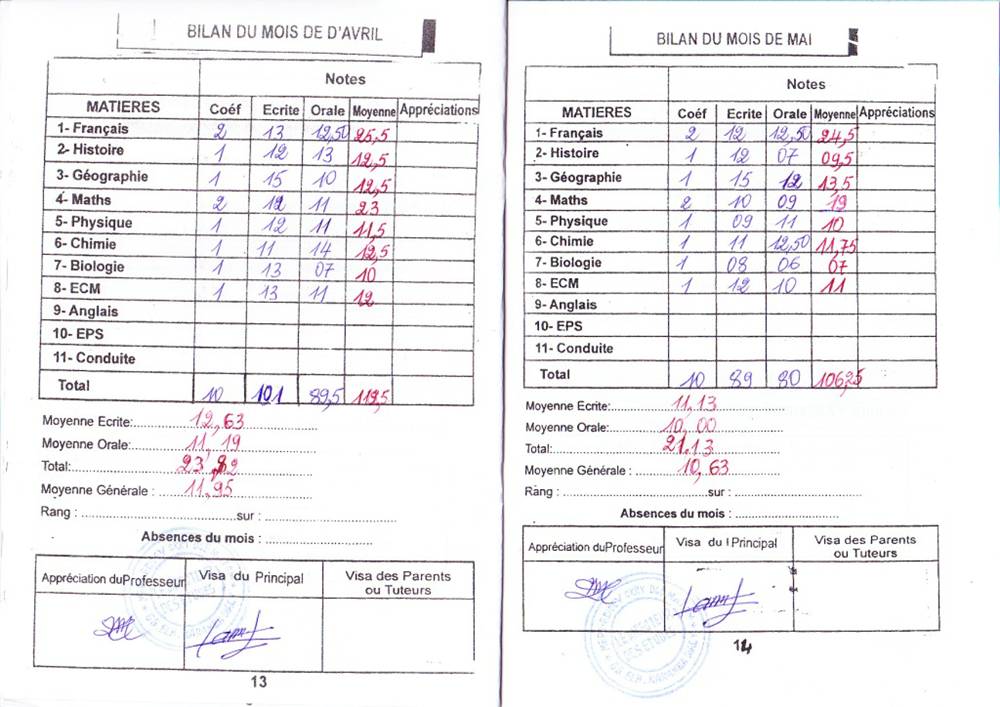 BILAN DU MOIS DE D'AVRIL
Notes
MATIERES Coéf Ecrite Orale Moyenne Appréciations
1- Français 2 13 12,50 25,5
2- Histoire 1 12 13 12,5
3- Géographie 1 15 10 12,5
4- Maths 2 12 11 23
5- Physique 1 12 11 11,5
6- Chimie 1 11 14 12,5
7- Biologie 1 13 07 10
8- ECM 1 13 11 12
9- Anglais
10- EPS
11- Conduite
Total 10 101 89,5 119,5
Moyenne Ecrite: 12,63
Moyenne Orale: 11,19
Total: 23,82
Moyenne Générale : 11.95
Rang : sur :
Absences du mois :
Appréciation du Professeur Visa du Principal Visa des Parents
ou Tuteurs
13
BILAN DU MOIS DE MAI
Notes
MATIERES Coéf Ecrite Orale Moyenne Appréciations
1- Français 2 12 12,50 24,5
2- Histoire 1 12 07 09,5
3- Géographie 1 15 12 13,5
4- Maths 2 10 09 19
5- Physique 1 09 11 10
6- Chimie 1 11 12,50 11,75
7- Biologie 1 08 06 07
8- ECM 1 12 10 11
9- Anglais
10- EPS
11- Conduite
Total 10 89 80 106,25
Moyenne Ecrite: 11,13
Moyenne Orale: 10,00
Total: 21.13
Moyenne Générale : 10,63
Rang : sur :
Absences du mois :
Appréciation du Professeur Visa du Principal Visa des Parents
ou Tuteurs
14